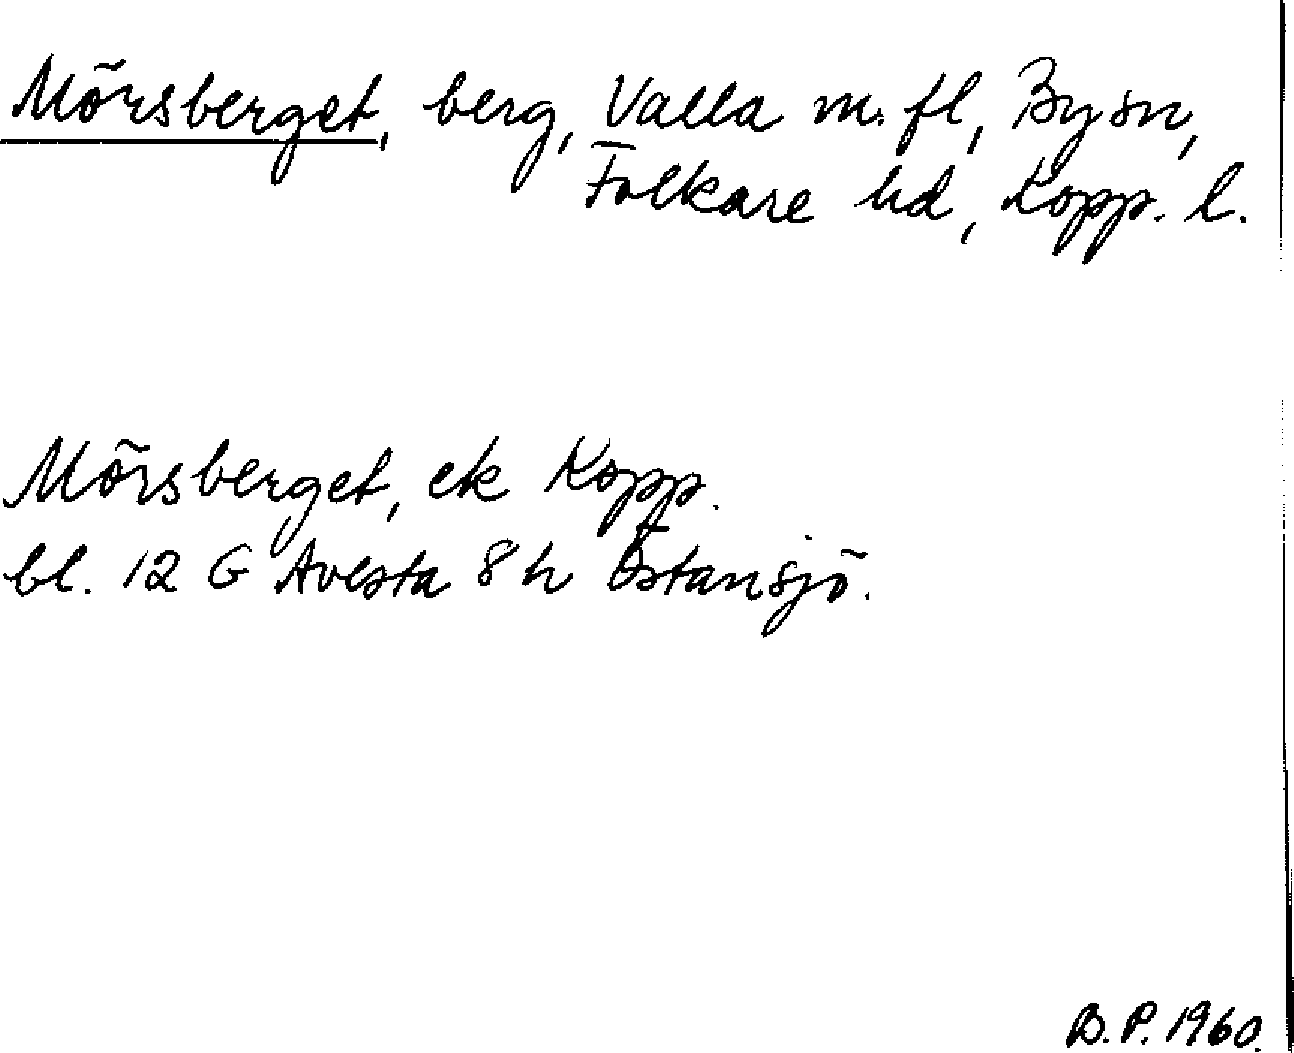 Mörsberget, berg, Valla m. fl, By sn,
Folkare hd, Kopp. l.
Mörsberget, ek Kopp.
bl. 12 G Avesta 8 h Östansjö.
B. P. 1960.